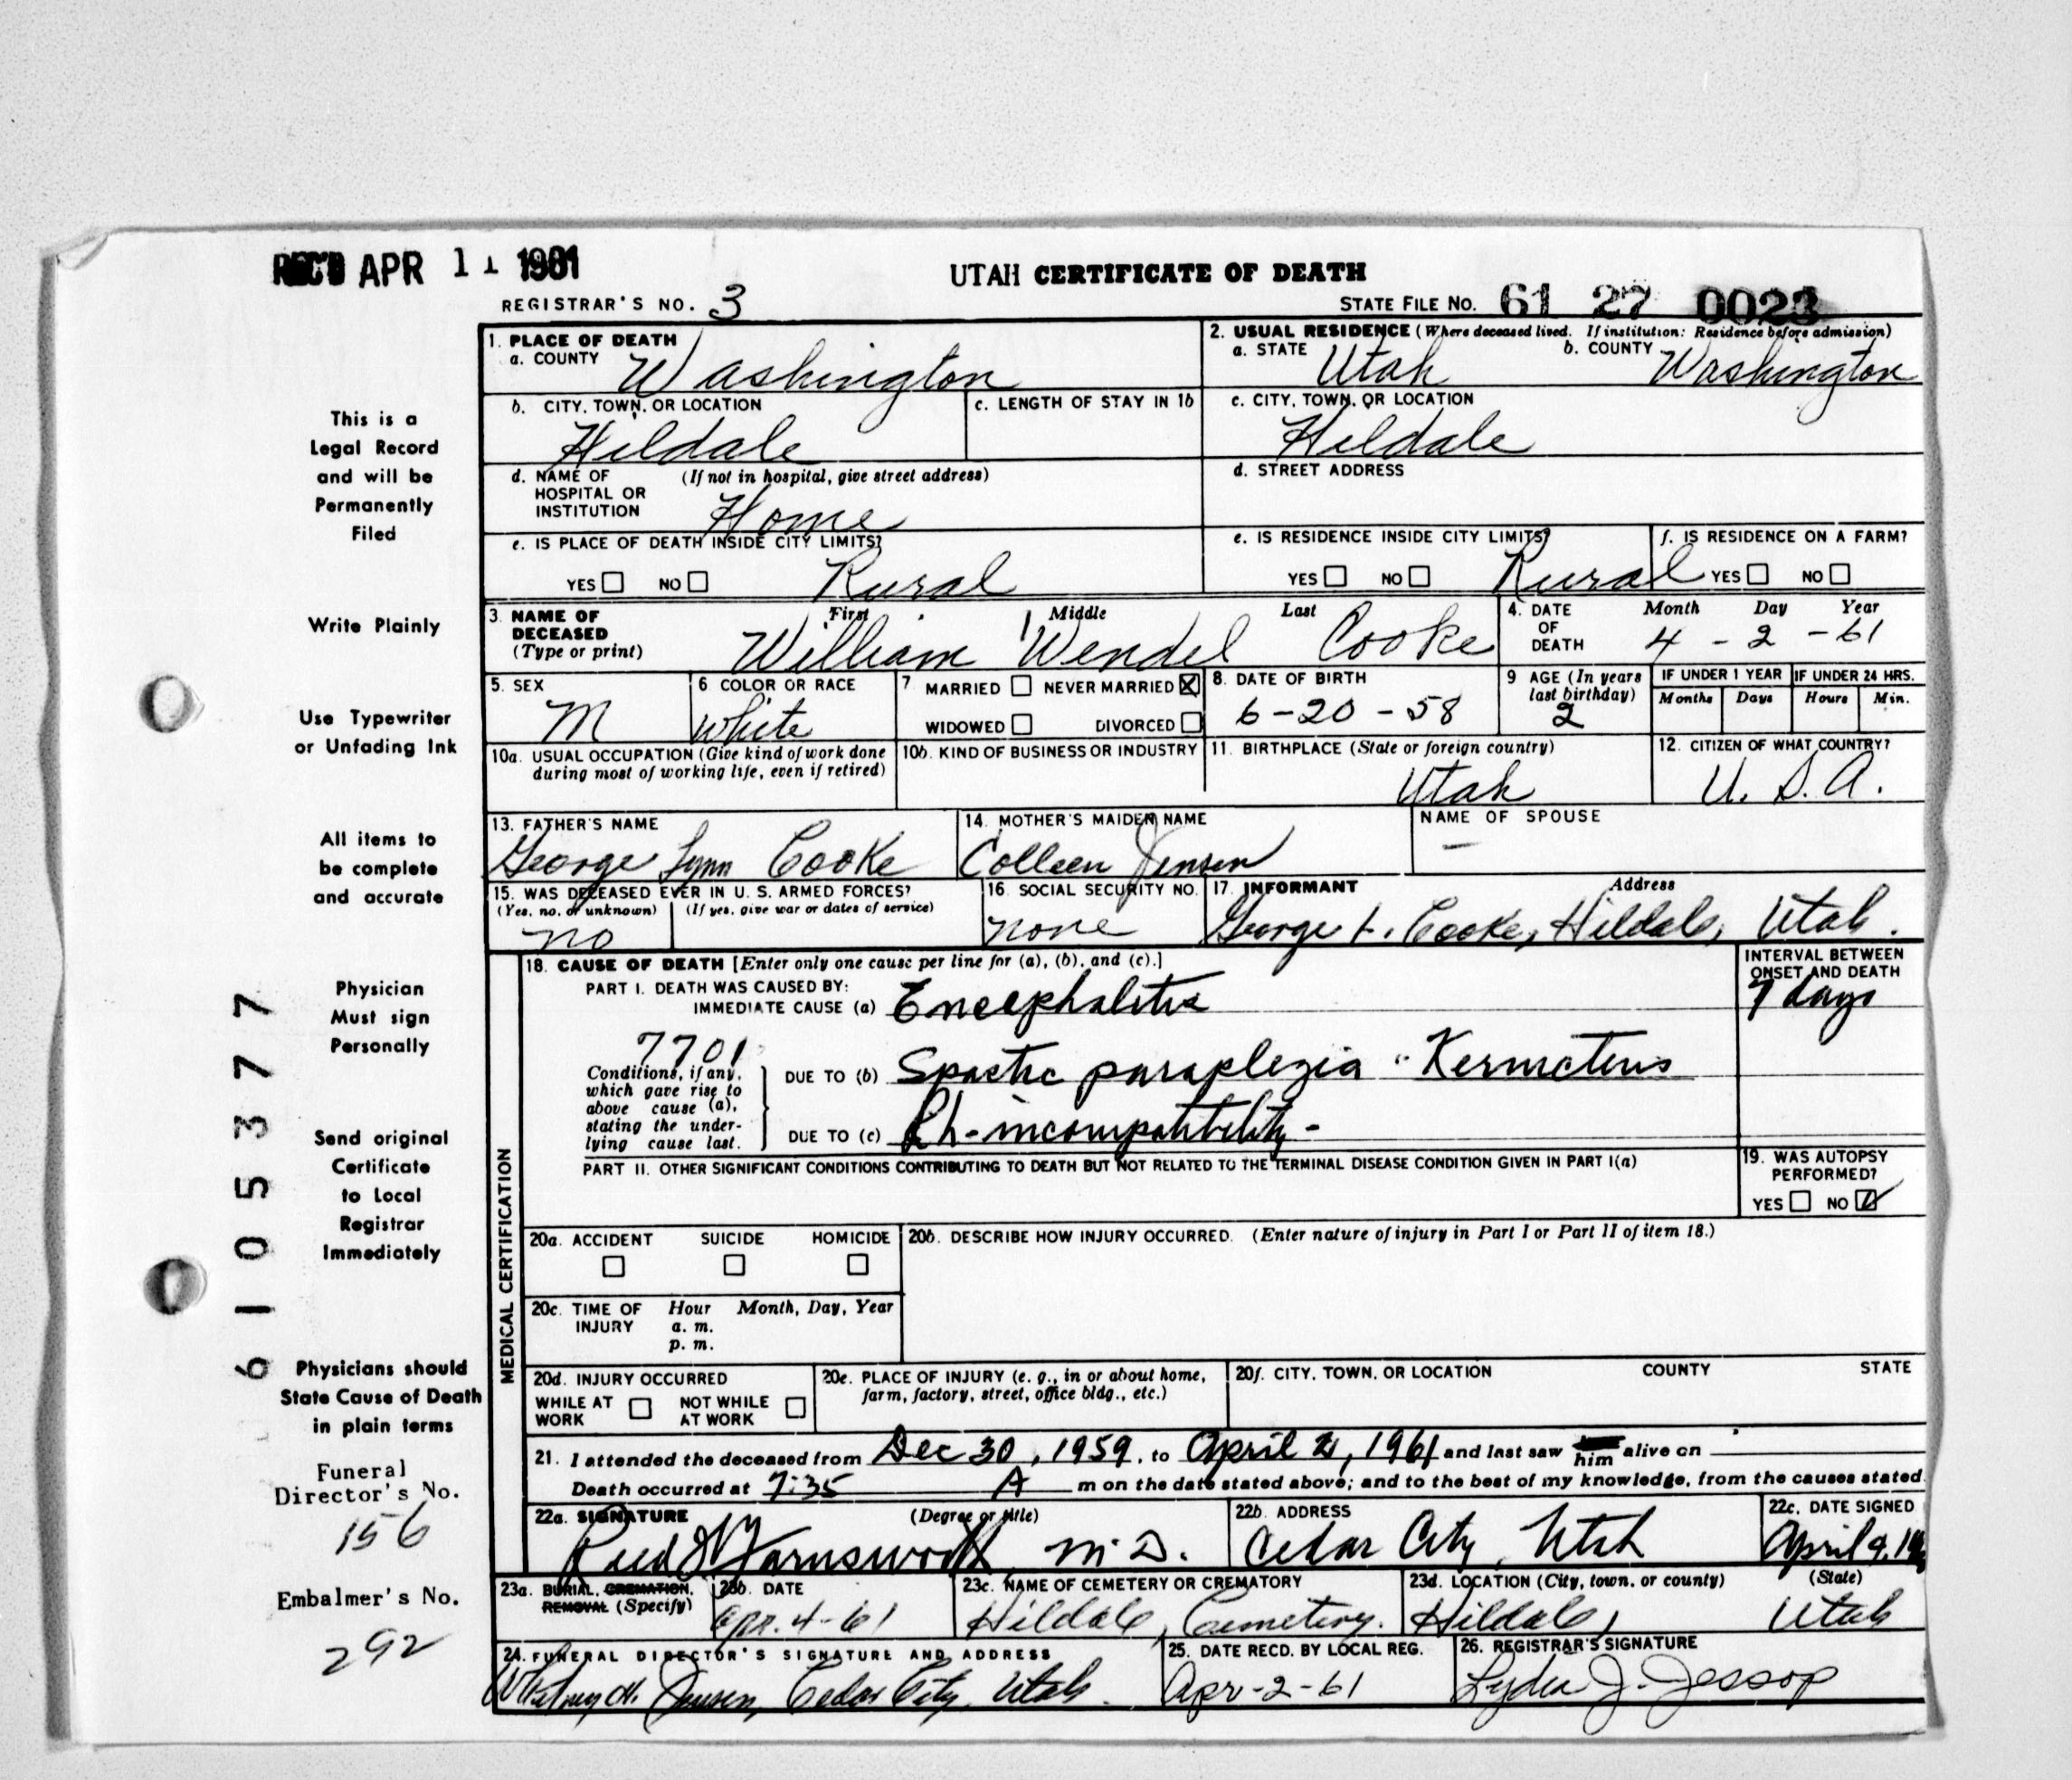 REC'D APR 11 1961
UTAH CERTIFICATE OF DEATH
REGISTRAR'S NO. 3
STATE FILE NO. 61 27 0023
This is a
Legal Record
and will be
Permanently
Filed
Write Plainly
Use Typewriter
or Unfading Ink
All items to
be complete
and accurate
Physician
Must sign
Personally
Send original
Certificate
to Local
Registrar
Immediately
Physicians should
State Cause of Death
in plain terms
Funeral
Director's No.
156
Embalmer's No.
292
6105377
1. PLACE OF DEATH
a. COUNTY Washington
2. USUAL RESIDENCE (Where deceased lived. If institution: Residence before admission)
a. STATE Utah b. COUNTY Washington
b. CITY, TOWN, OR LOCATION Hildale
c. LENGTH OF STAY IN 1b
c. CITY, TOWN, OR LOCATION Hildale
d. NAME OF (If not in hospital, give street address)
HOSPITAL OR
INSTITUTION Home
d. STREET ADDRESS
e. IS PLACE OF DEATH INSIDE CITY LIMITS?
YES NO Rural
e. IS RESIDENCE INSIDE CITY LIMITS?
YES NO Rural
f. IS RESIDENCE ON A FARM?
YES NO
3. NAME OF First Middle Last
DECEASED
(Type or print) William Wendel Cooke
4. DATE Month Day Year
OF
DEATH 4 - 2 - 61
5. SEX
M
6. COLOR OR RACE
White
7 MARRIED NEVER MARRIED
WIDOWED DIVORCED
8. DATE OF BIRTH
6-20-58
9 AGE (In years
last birthday)
2
IF UNDER 1 YEAR
Months Days
IF UNDER 24 HRS.
Hours Min.
10a. USUAL OCCUPATION (Give kind of work done
during most of working life, even if retired)
10b. KIND OF BUSINESS OR INDUSTRY
11. BIRTHPLACE (State or foreign country)
Utah
12. CITIZEN OF WHAT COUNTRY?
U. S. A.
13. FATHER'S NAME
George Lynn Cooke
14. MOTHER'S MAIDEN NAME
Colleen Jensen
NAME OF SPOUSE
–
15. WAS DECEASED EVER IN U. S. ARMED FORCES?
(Yes, no, or unknown) (If yes, give war or dates of service)
no
16. SOCIAL SECURITY NO.
none
17. INFORMANT Address
George L. Cooke, Hildale, Utah.
18. CAUSE OF DEATH [Enter only one cause per line for (a), (b), and (c).]
PART I. DEATH WAS CAUSED BY:
IMMEDIATE CAUSE (a) Encephalitis
INTERVAL BETWEEN
ONSET AND DEATH
7 days
7701
Conditions, if any,
which gave rise to
above cause (a),
stating the under-
lying cause last.
DUE TO (b) Spastic paraplegia "Kernicterus
DUE TO (c) Rh-incompatibility-
PART II. OTHER SIGNIFICANT CONDITIONS CONTRIBUTING TO DEATH BUT NOT RELATED TO THE TERMINAL DISEASE CONDITION GIVEN IN PART I(a)
19. WAS AUTOPSY
PERFORMED?
YES NO
MEDICAL CERTIFICATION
20a. ACCIDENT SUICIDE HOMICIDE
20b. DESCRIBE HOW INJURY OCCURRED. (Enter nature of injury in Part I or Part II of item 18.)
20c. TIME OF Hour Month, Day, Year
INJURY a. m.
p. m.
20d. INJURY OCCURRED
WHILE AT NOT WHILE
WORK AT WORK
20e. PLACE OF INJURY (e. g., in or about home,
farm, factory, street, office bldg., etc.)
20f. CITY, TOWN, OR LOCATION COUNTY STATE
21. I attended the deceased from Dec 30, 1959, to April 2, 1961 and last saw him alive on
Death occurred at 7:35 A m on the date stated above; and to the best of my knowledge, from the causes stated
22a. SIGNATURE (Degree or title)
Reed Farnsworth M.D.
22b. ADDRESS
Cedar City, Utah
22c. DATE SIGNED
April 9, 19
23a. BURIAL, CREMATION,
REMOVAL (Specify)
23b. DATE
Apr. 4-61
23c. NAME OF CEMETERY OR CREMATORY
Hildale, Cemetery.
23d. LOCATION (City, town, or county) (State)
Hildale, Utah
24. FUNERAL DIRECTOR'S SIGNATURE AND ADDRESS
Jensen, Cedar City, Utah.
25. DATE RECD. BY LOCAL REG.
Apr-2-61
26. REGISTRAR'S SIGNATURE
Lydia J. Jessop